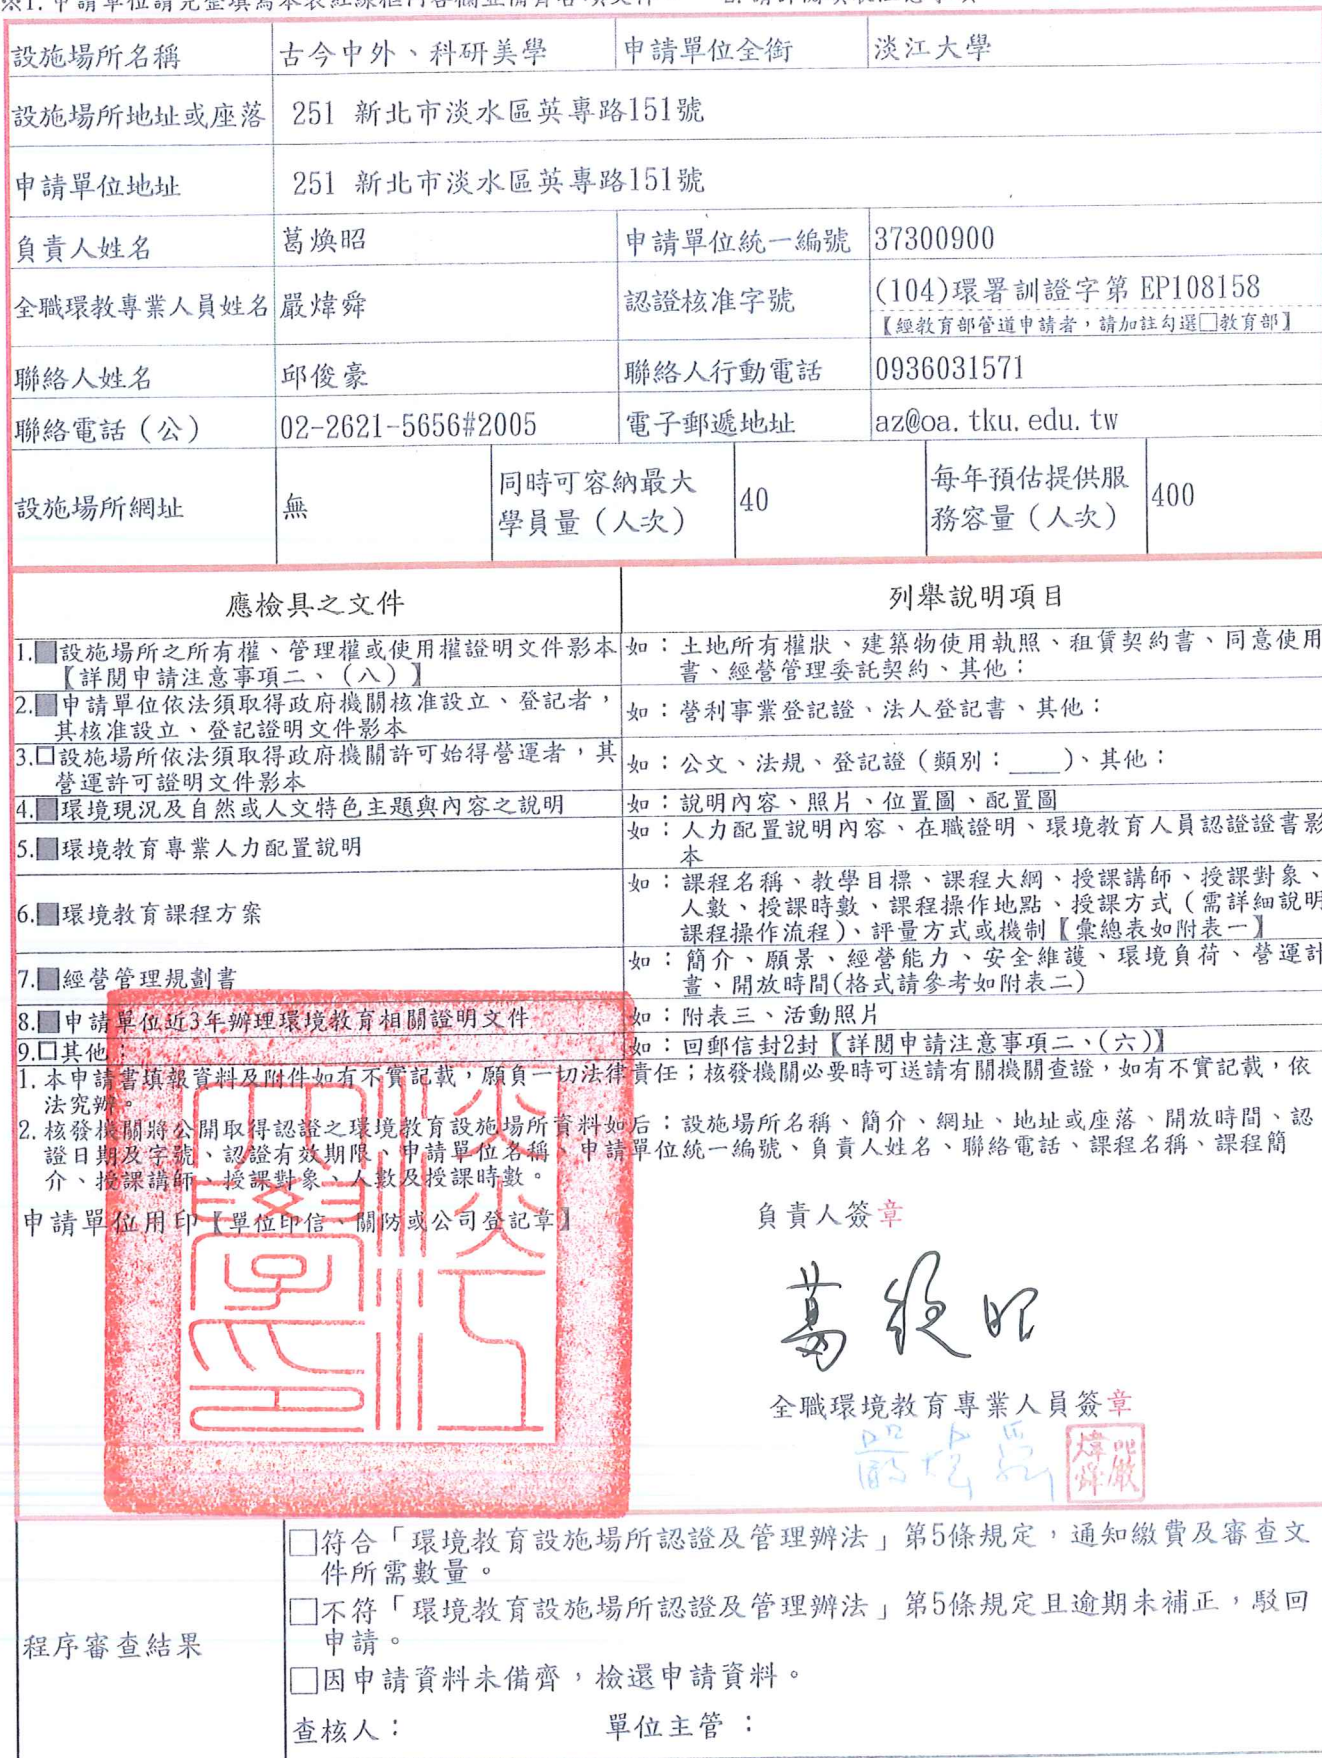 ※1.申請單位請完整填寫本表紅線框內各欄並備齊各項文件
設施場所名稱 古今中外、科研美學 申請單位全銜 淡江大學
設施場所地址或座落 251 新北市淡水區英專路151號
申請單位地址 251 新北市淡水區英專路151號
負責人姓名 葛煥昭 申請單位統一編號 37300900
全職環教專業人員姓名 嚴煒舜 認證核准字號 (104)環署訓證字第 EP108158
【經教育部管道申請者，請加註勾選□教育部】
聯絡人姓名 邱俊豪 聯絡人行動電話 0936031571
聯絡電話（公） 02-2621-5656#2005 電子郵遞地址 az@oa.tku.edu.tw
設施場所網址 無 同時可容納最大 40 每年預估提供服 400
學員量（人次） 務容量（人次）
應檢具之文件 列舉說明項目
1.■設施場所之所有權、管理權或使用權證明文件影本 如：土地所有權狀、建築物使用執照、租賃契約書、同意使用
【詳閱申請注意事項二、（八）】 書、經營管理委託契約、其他：
2.■申請單位依法須取得政府機關核准設立、登記者， 如：營利事業登記證、法人登記書、其他：
其核准設立、登記證明文件影本
3.□設施場所依法須取得政府機關許可始得營運者，其 如：公文、法規、登記證（類別：____）、其他：
營運許可證明文件影本
4.■環境現況及自然或人文特色主題與內容之說明 如：說明內容、照片、位置圖、配置圖
5.■環境教育專業人力配置說明 如：人力配置說明內容、在職證明、環境教育人員認證證書影
本
6.■環境教育課程方案 如：課程名稱、教學目標、課程大綱、授課講師、授課對象、
人數、授課時數、課程操作地點、授課方式（需詳細說明
課程操作流程）、評量方式或機制【彙總表如附表一】
7.■經營管理規劃書 如：簡介、願景、經營能力、安全維護、環境負荷、營運計
畫、開放時間(格式請參考如附表二)
8.■申請單位近3年辦理環境教育相關證明文件 如：附表三、活動照片
9.□其他： 如：回郵信封2封【詳閱申請注意事項二、(六)】
1.本申請書填報資料及附件如有不實記載，願負一切法律責任；核發機關必要時可送請有關機關查證，如有不實記載，依
法究辦。
2.核發機關將公開取得認證之環境教育設施場所資料如后：設施場所名稱、簡介、網址、地址或座落、開放時間、認
證日期及字號、認證有效期限、申請單位名稱、申請單位統一編號、負責人姓名、聯絡電話、課程名稱、課程簡
介、授課講師、授課對象、人數及授課時數。
申請單位用印【單位印信、關防或公司登記章】 負責人簽章
淡江大學印
葛煥昭
全職環境教育專業人員簽章
嚴煒舜 嚴煒舜
程序審查結果
□符合「環境教育設施場所認證及管理辦法」第5條規定，通知繳費及審查文
件所需數量。
□不符「環境教育設施場所認證及管理辦法」第5條規定且逾期未補正，駁回
申請。
□因申請資料未備齊，檢還申請資料。
查核人： 單位主管：